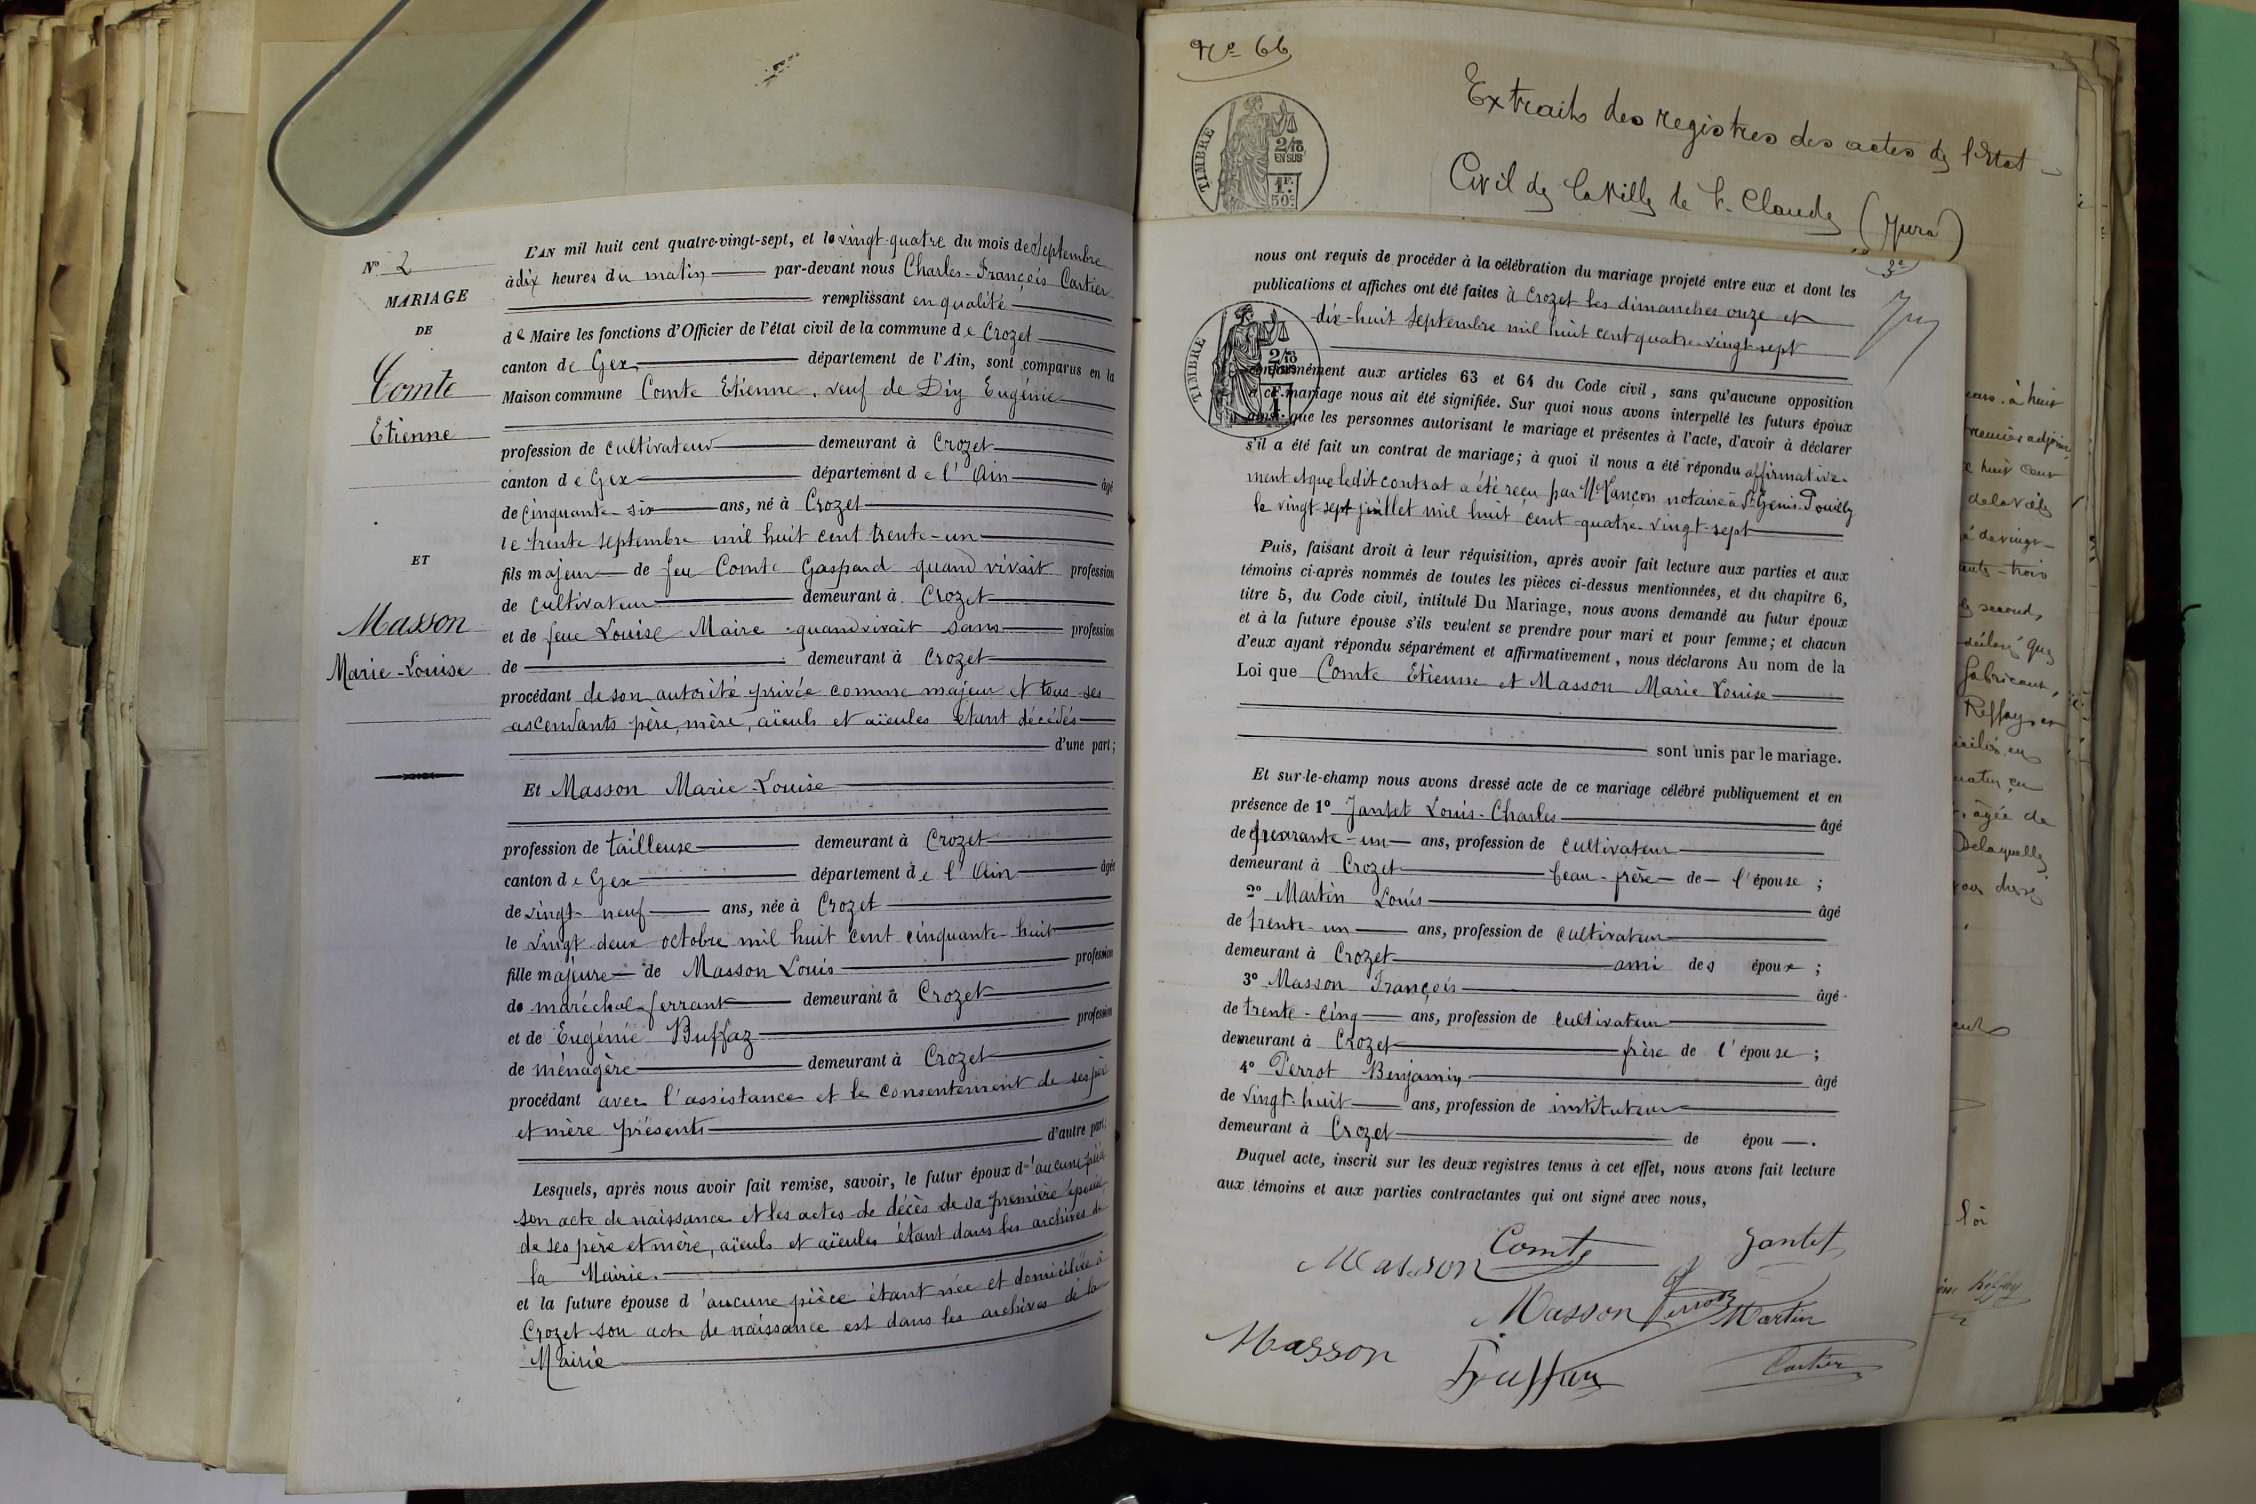 L'AN mil huit cent quatre-vingt-sept, et le vingt-quatre du mois de Septembre
N° 2
à dix heures du matin par-devant nous Charles-François Cartier
MARIAGE
remplissant en qualité
DE
de Maire les fonctions d'Officier de l'état civil de la commune de Crozet
canton de Gex, département de l'Ain, sont comparus en la
Comte
Maison commune Comte Etienne, veuf de Diy Eugénie
Etienne
profession de cultivateur demeurant à Crozet
canton de Gex département de l'Ain âgé
de cinquante six ans, né à Crozet
le trente septembre mil huit cent trente-un
ET
fils majeur de feu Comte Gaspard quand vivait profession
de cultivateur demeurant à Crozet
Masson
et de feue Louise Maire quand vivait sans profession
Marie-Louise
de demeurant à Crozet
procédant de son autorité privée comme majeur et tous ses
ascendants père, mère, aïeuls et aïeules étant décédés
d'une part;
Et Masson Marie-Louise
profession de tailleuse demeurant à Crozet
canton de Gex département de l'Ain âgée
de vingt-neuf ans, née à Crozet
le vingt-deux octobre mil huit cent cinquante-huit
fille majeure de Masson Louis profession
de maréchal-ferrant demeurant à Crozet
et de Eugénie Buffaz profession
de ménagère demeurant à Crozet
procédant avec l'assistance et le consentement de ses père
et mère présents
d'autre part;
Lesquels, après nous avoir fait remise, savoir, le futur époux d'aucune pièce
son acte de naissance et les actes de décès de sa première épouse,
de ses père et mère, aïeuls et aïeules étant dans les archives de
la Mairie.
et la future épouse d'aucune pièce étant née et domiciliée à
Crozet son acte de naissance est dans les archives de la
Mairie
N° 66
Extraits des registres des actes de l'Etat
Civil de la Ville de St. Claude (Jura)
TIMBRE
2/10 EN SUS
1F. 50c.
3e
nous ont requis de procéder à la célébration du mariage projeté entre eux et dont les
publications et affiches ont été faites à Crozet les dimanches onze et
dix-huit Septembre mil huit cent quatre-vingt-sept
TIMBRE
2/10
conformément aux articles 63 et 64 du Code civil, sans qu'aucune opposition
à ce mariage nous ait été signifiée. Sur quoi nous avons interpellé les futurs époux
ainsi que les personnes autorisant le mariage et présentes à l'acte, d'avoir à déclarer
s'il a été fait un contrat de mariage; à quoi il nous a été répondu affirmative-
ment et que ledit contrat a été reçu par Me Lançon notaire à St Genis-Pouilly
le vingt-sept juillet mil huit cent quatre-vingt-sept
Puis, faisant droit à leur réquisition, après avoir fait lecture aux parties et aux
témoins ci-après nommés de toutes les pièces ci-dessus mentionnées, et du chapitre 6,
titre 5, du Code civil, intitulé Du Mariage, nous avons demandé au futur époux
et à la future épouse s'ils veulent se prendre pour mari et pour femme; et chacun
d'eux ayant répondu séparément et affirmativement, nous déclarons Au nom de la
Loi que Comte Etienne et Masson Marie Louise
sont unis par le mariage.
Et sur-le-champ nous avons dressé acte de ce mariage célébré publiquement et en
présence de 1° Jantet Louis-Charles âgé
de quarante-un ans, profession de cultivateur
demeurant à Crozet beau-frère de l'épouse;
2° Martin Louis âgé
de trente-un ans, profession de cultivateur
demeurant à Crozet ami des époux;
3° Masson François âgé
de trente-cinq ans, profession de cultivateur
demeurant à Crozet frère de l'épouse;
4° Perrot Benjamin âgé
de vingt-huit ans, profession de instituteur
demeurant à Crozet de épou .
Duquel acte, inscrit sur les deux registres tenus à cet effet, nous avons fait lecture
aux témoins et aux parties contractantes qui ont signé avec nous,
Masson Comte Jantet
Masson Perrot Martin
Masson Buffaz Cartier
à huit
premier adjoint
huit cent
de la ville
de vingt-
trois
second,
déclaré que
fabricant,
Reffay et
en
âgée de
Delaquelle
loi
Reffay